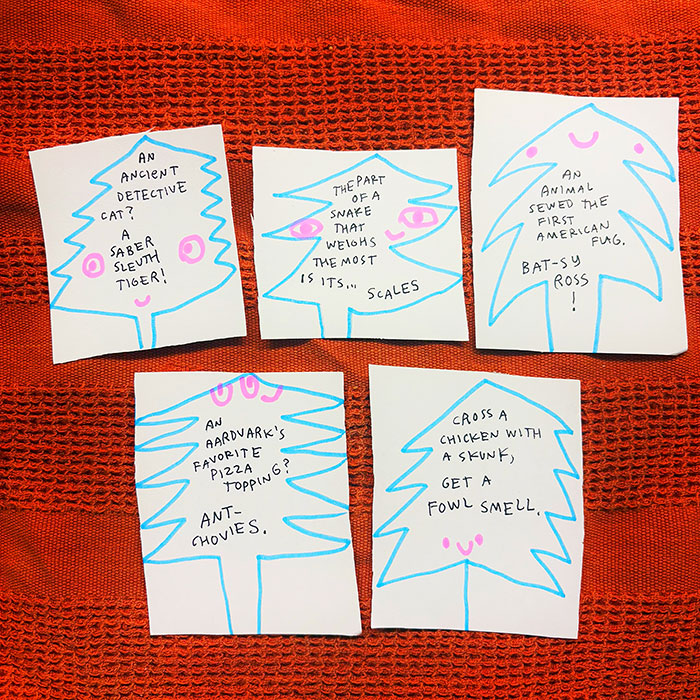 AN
ANCIENT
DETECTIVE
CAT?
A
SABER
SLEUTH
TIGER!
THE PART
OF A
SNAKE
THAT
WEIGHS
THE MOST
IS ITS... SCALES
AN
ANIMAL
SEWED THE
FIRST
AMERICAN
FLAG.
BAT-SY
ROSS
!
AN
AARDVARK'S
FAVORITE
PIZZA
TOPPING?
ANT-
CHOVIES.
CROSS A
CHICKEN WITH
A SKUNK,
GET A
FOWL SMELL.